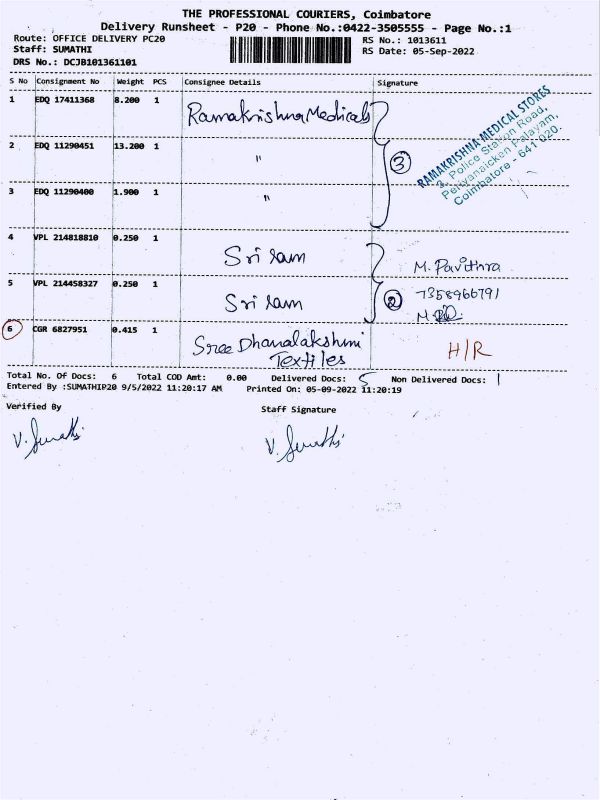 THE PROFESSIONAL COURIERS, Coimbatore
Delivery Runsheet - P20 - Phone No.:0422-3505555 - Page No.:1
Route: OFFICE DELIVERY PC20 RS No.: 1013611
Staff: SUMATHI RS Date: 05-Sep-2022
DRS No.: DCJB101361101
S No Consignment No Weight PCS Consignee Details Signature
1 EDQ 17411368 8.200 1 Ramakrishna Medicals
RAMAKRISHNA MEDICAL STORES
2, Police Station Road,
Periyanaicken Palayam,
Coimbatore - 641 020.
2 EDQ 11290451 13.200 1 " 3
3 EDQ 11290400 1.900 1 "
4 VPL 214818810 0.250 1 Sri ram M. Pavithra
5 VPL 214458327 0.250 1 Sri ram 2 7358966791
6 CGR 6827951 0.415 1 Sree Dhanalakshmi Textiles H/R
Total No. Of Docs: 6 Total COD Amt: 0.00 Delivered Docs: 5 Non Delivered Docs: 1
Entered By :SUMATHIP20 9/5/2022 11:20:17 AM Printed On: 05-09-2022 11:20:19
Verified By Staff Signature
V. Sumathi V. Sumathi